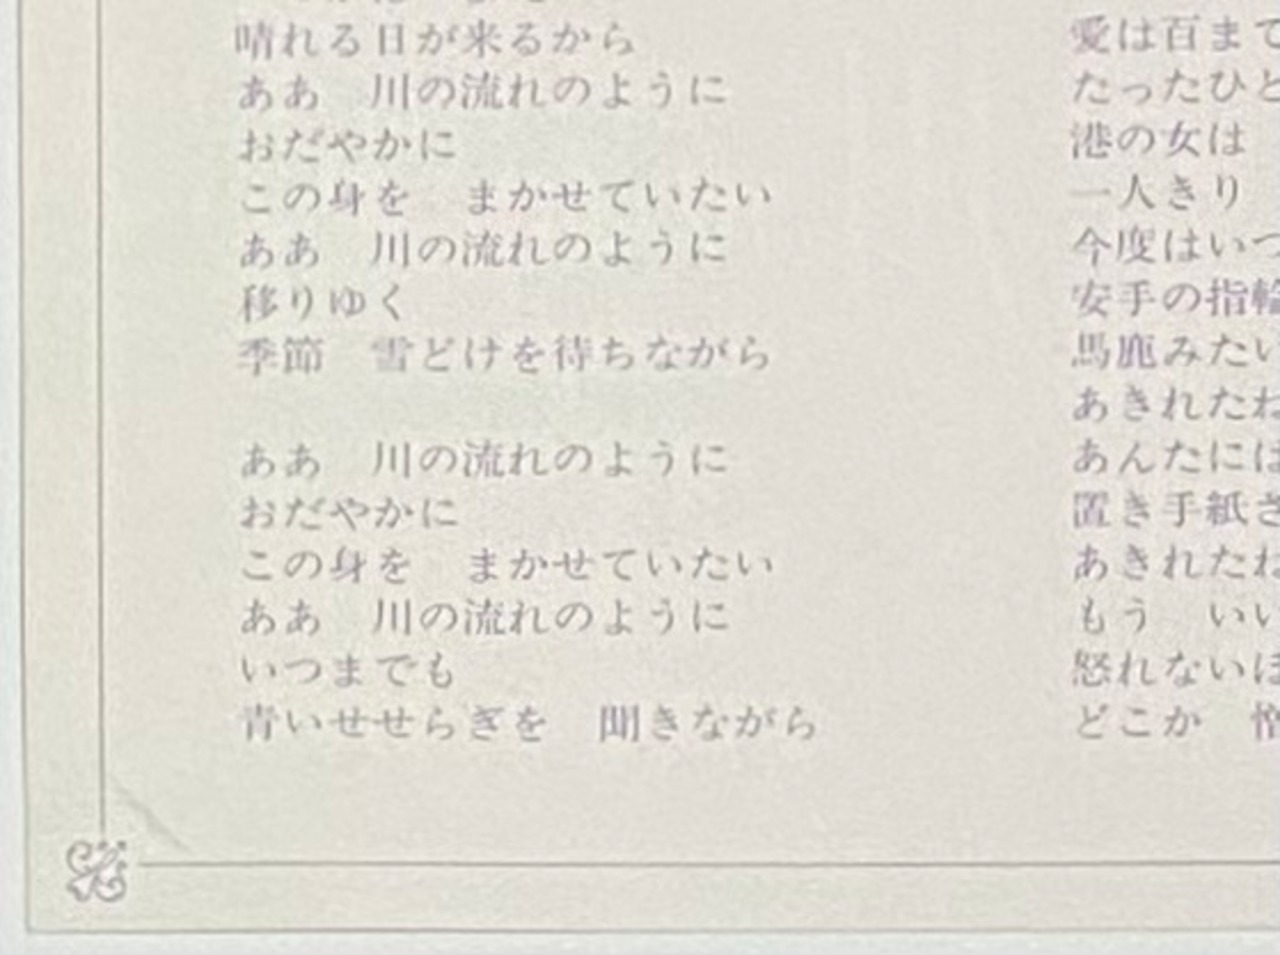 晴れる日が来るから
ああ　川の流れのように
おだやかに
この身を　まかせていたい
ああ　川の流れのように
移りゆく
季節　雪どけを待ちながら
ああ　川の流れのように
おだやかに
この身を　まかせていたい
ああ　川の流れのように
いつまでも
青いせせらぎを　聞きながら
愛は百まで
たったひと
港の女は
一人きり
今度はいつ
安手の指輪
馬鹿みたい
あきれたわ
あんたには
置き手紙さ
あきれたわ
もう　いい
怒れないほ
どこか　憎